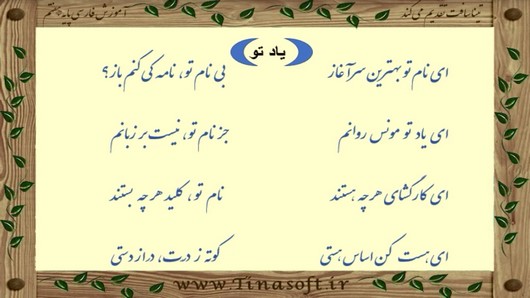 تیناسافت تقدیم می کند
آموزش فارسی پایه هفتم
یاد تو
ای نام تو بهترین سرآغاز بی نام تو، نامه کی کنم باز؟
ای یاد تو مونس روانم جز نام تو، نیست بر زبانم
ای کارگشای هرچه هستند نام تو، کلید هرچه بستند
ای هست کن اساس هستی کوته ز درت، دراز دستی
www.Tinasoft.ir